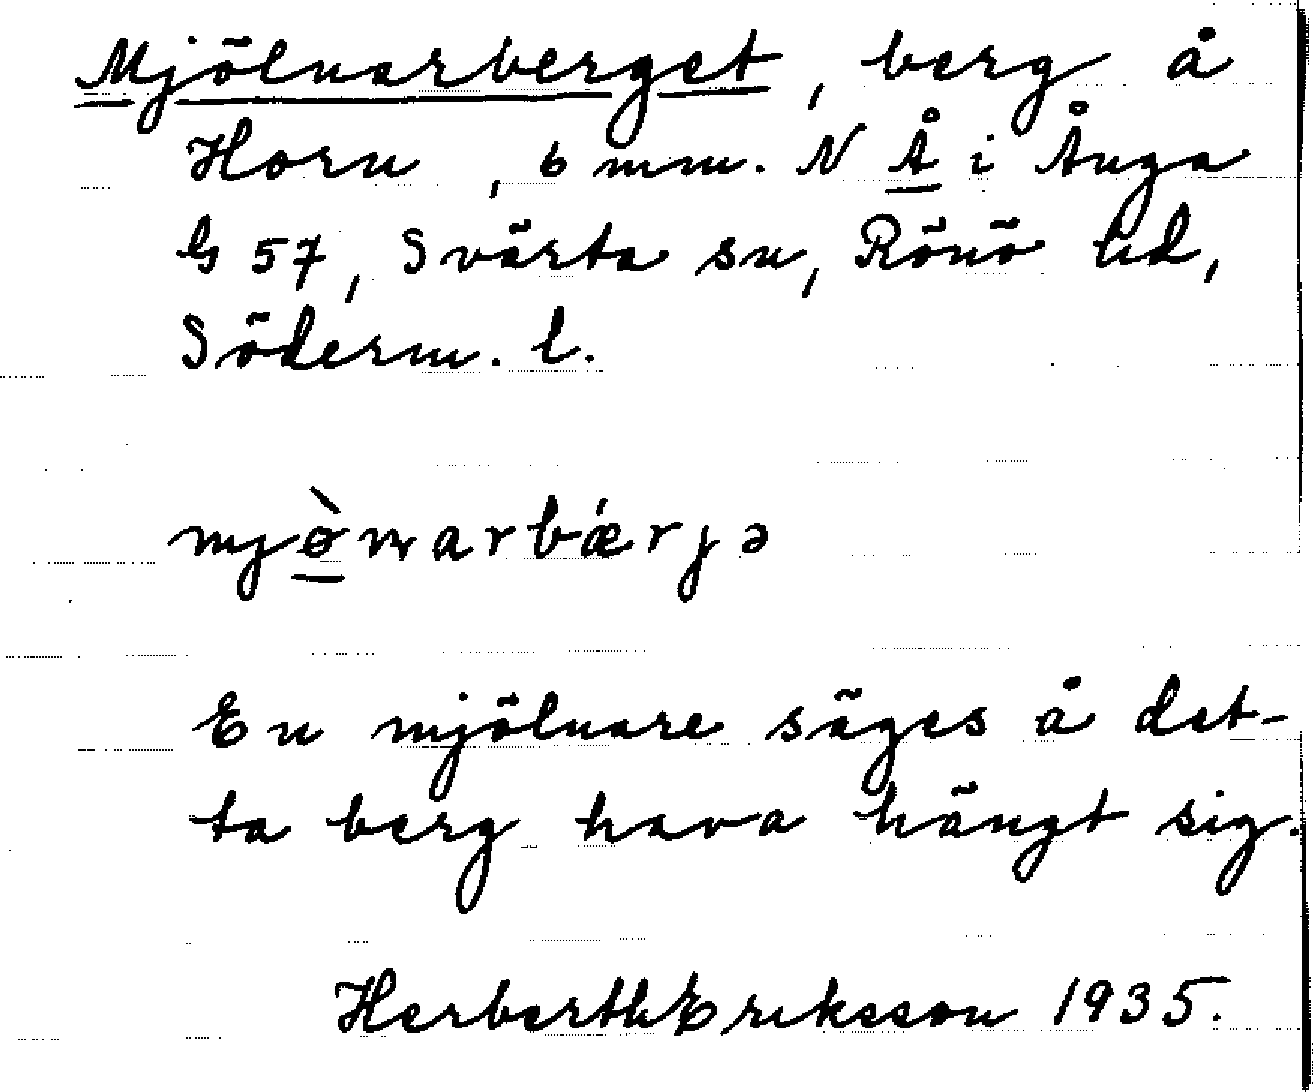 Mjölnarberget, berg å
Horn, 6 mm. N Å i Ånga
G 57, Svärta sn, Rönö hd,
Söderm. l.
mjø̀narbǽrjə
En mjölnare säges å det-
ta berg hava hängt sig.
Herbert Eriksson 1935.